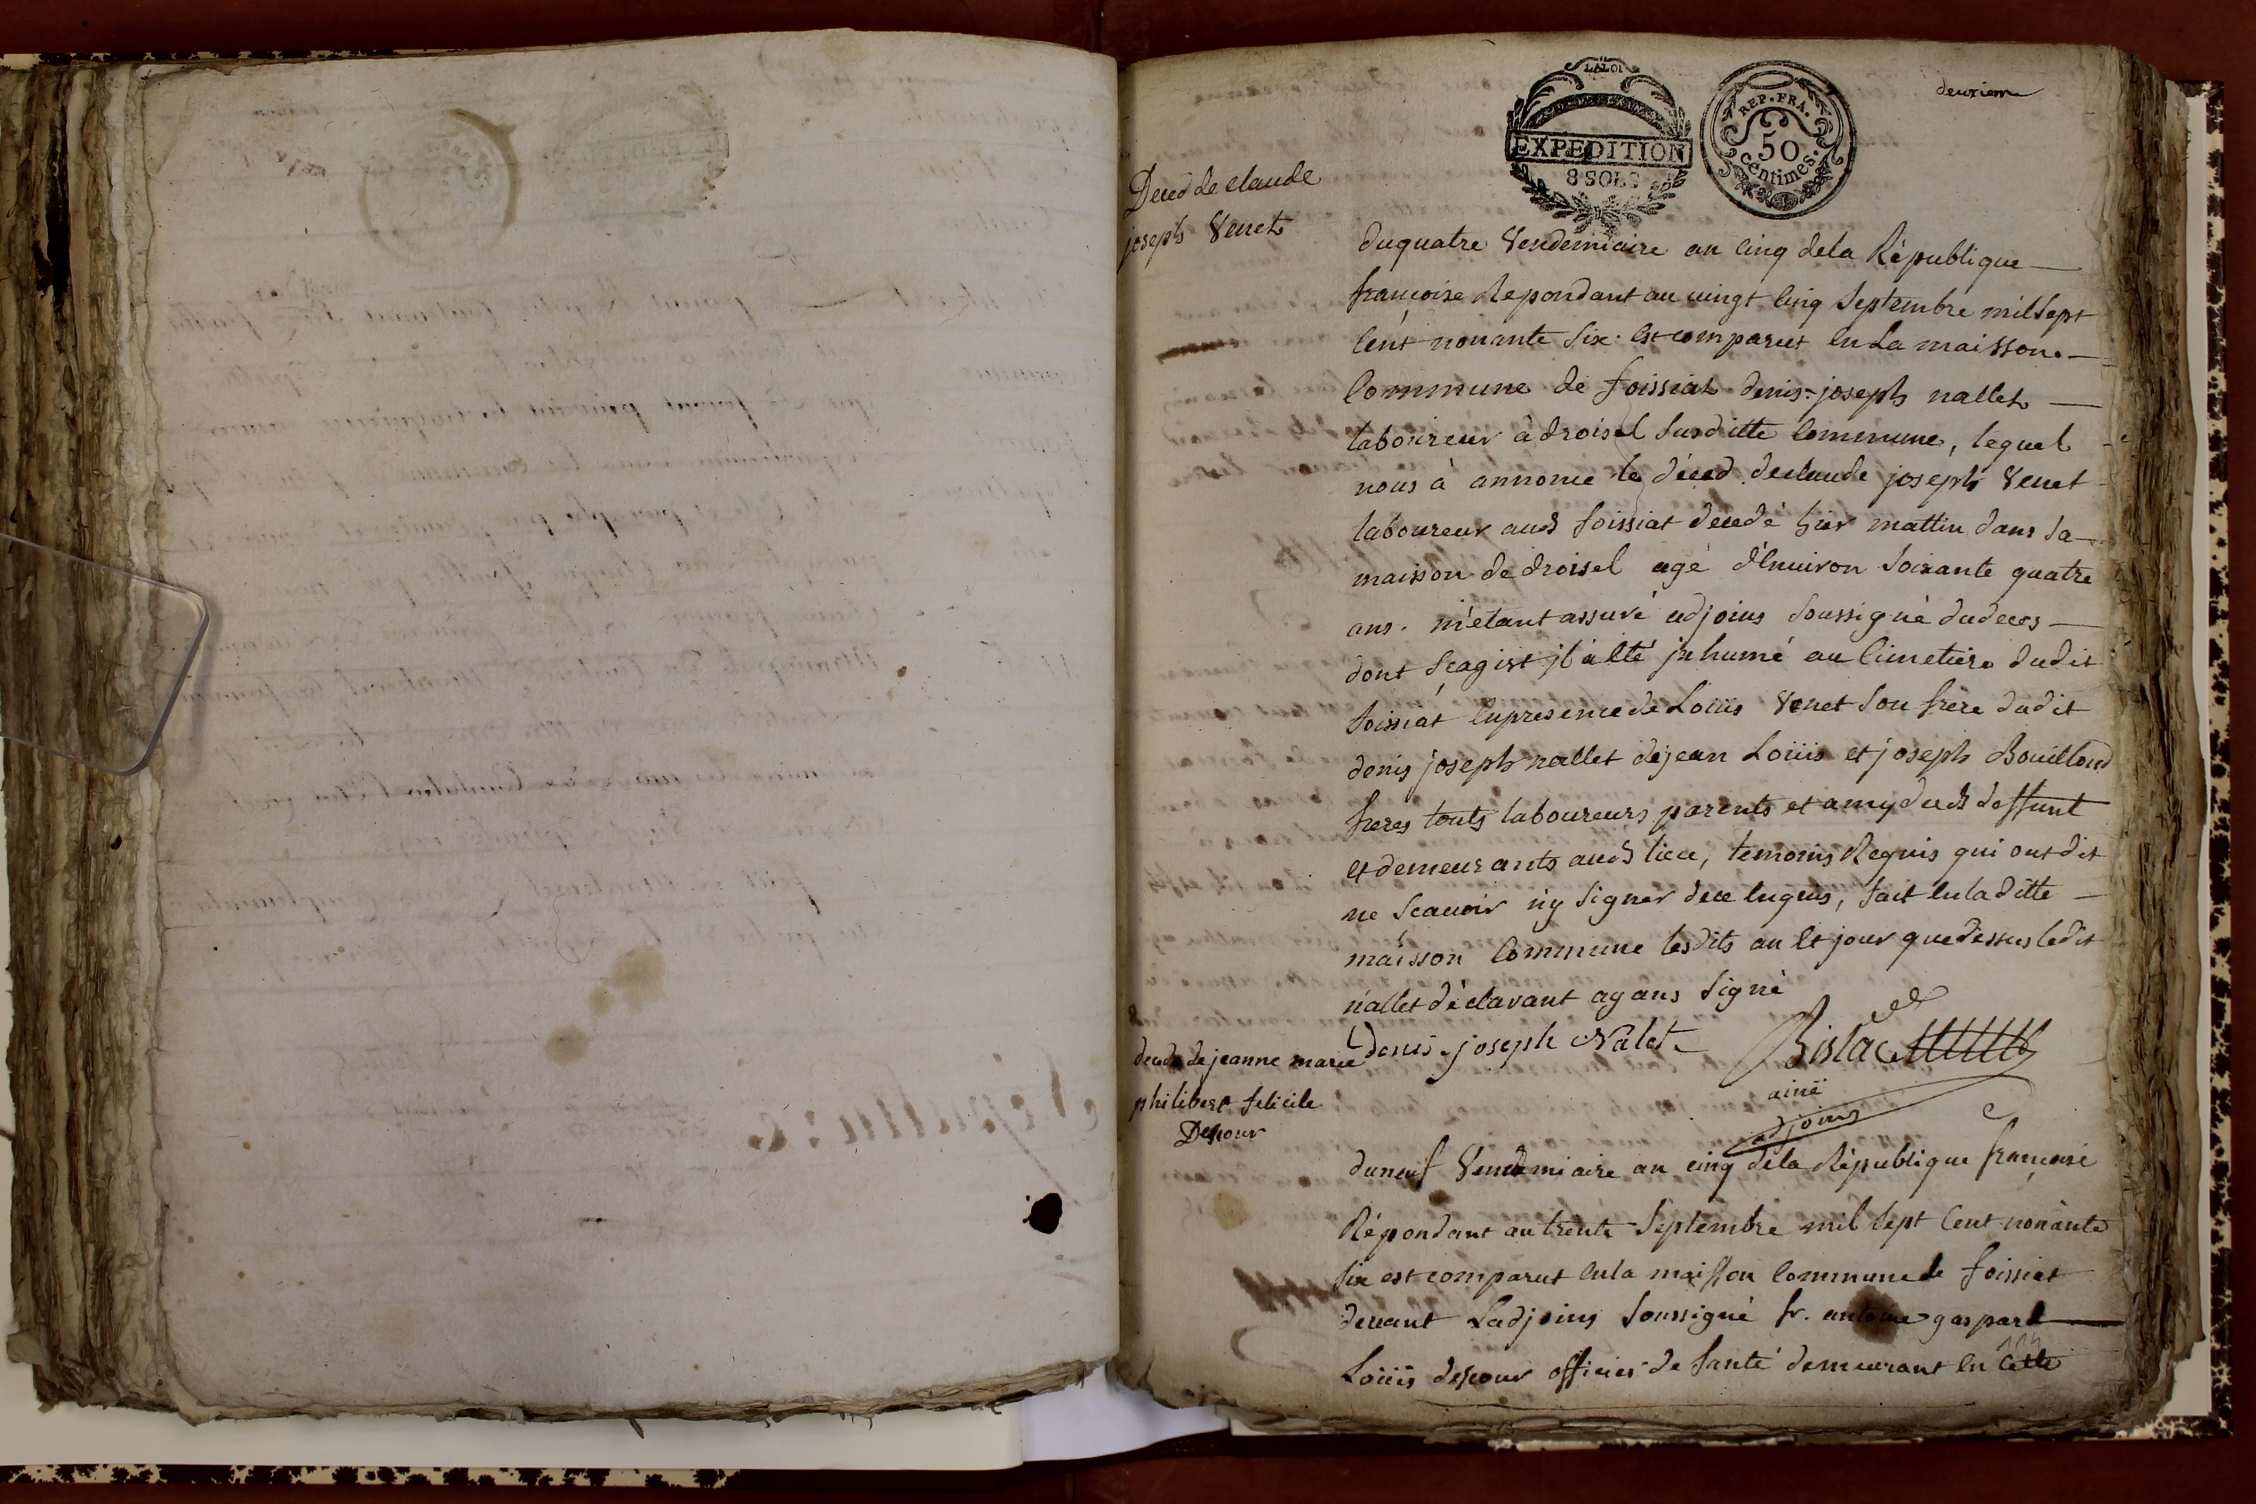 LALOI
EXPEDITION
8 SOLS
REP. FRA.
50
centimes.
deuxieme
Deced de claude
joseph Venet
du quatre Vendemiaire an cinq dela République
françoise Repondant au vingt cinq Septembre mil Sept
Cent nonante Six. Est comparut en La maisson
Commune de foissiat denis joseph nallet
laboureur à droisel Sus ditte Commune, lequel
nous à annoncé le déced de claude joseph Venet
laboureur aud foissiat decedé hier mattin dans Sa
maisson de droisel agé d'Environ Soixante quatre
ans. m'étant assuré adjoins Soussigné du deces
dont Seagist jl à Eté jnhumé au Cimetiere dudit
foissiat En presence de Loüis Venet Son frère dudit
denis joseph nallet de jean Loüis et joseph Bouilloud
freres touts laboureurs parents et amy dud deffunt
et demeurants aud lieu, temoins Requis qui ont dit
ne Scavoir ny Signer de ce Enquis, fait En la ditte
maisson Commune lesdits an Et jour que dessus ledit
nallet déclarant ayans Signé
denis joseph Nalet
ainé
adjoins
deced de jeanne marie
philiberte felicite
Du neuf Vendemiaire an cinq dela République françoise
Répondant au trente Septembre mil Sept Cent nonante
Six est comparut En la maisson Commune de foissiat
devant Ladjoins Soussigné fr. antoine gaspard
Loüis officier de Santé demeurant En Cette